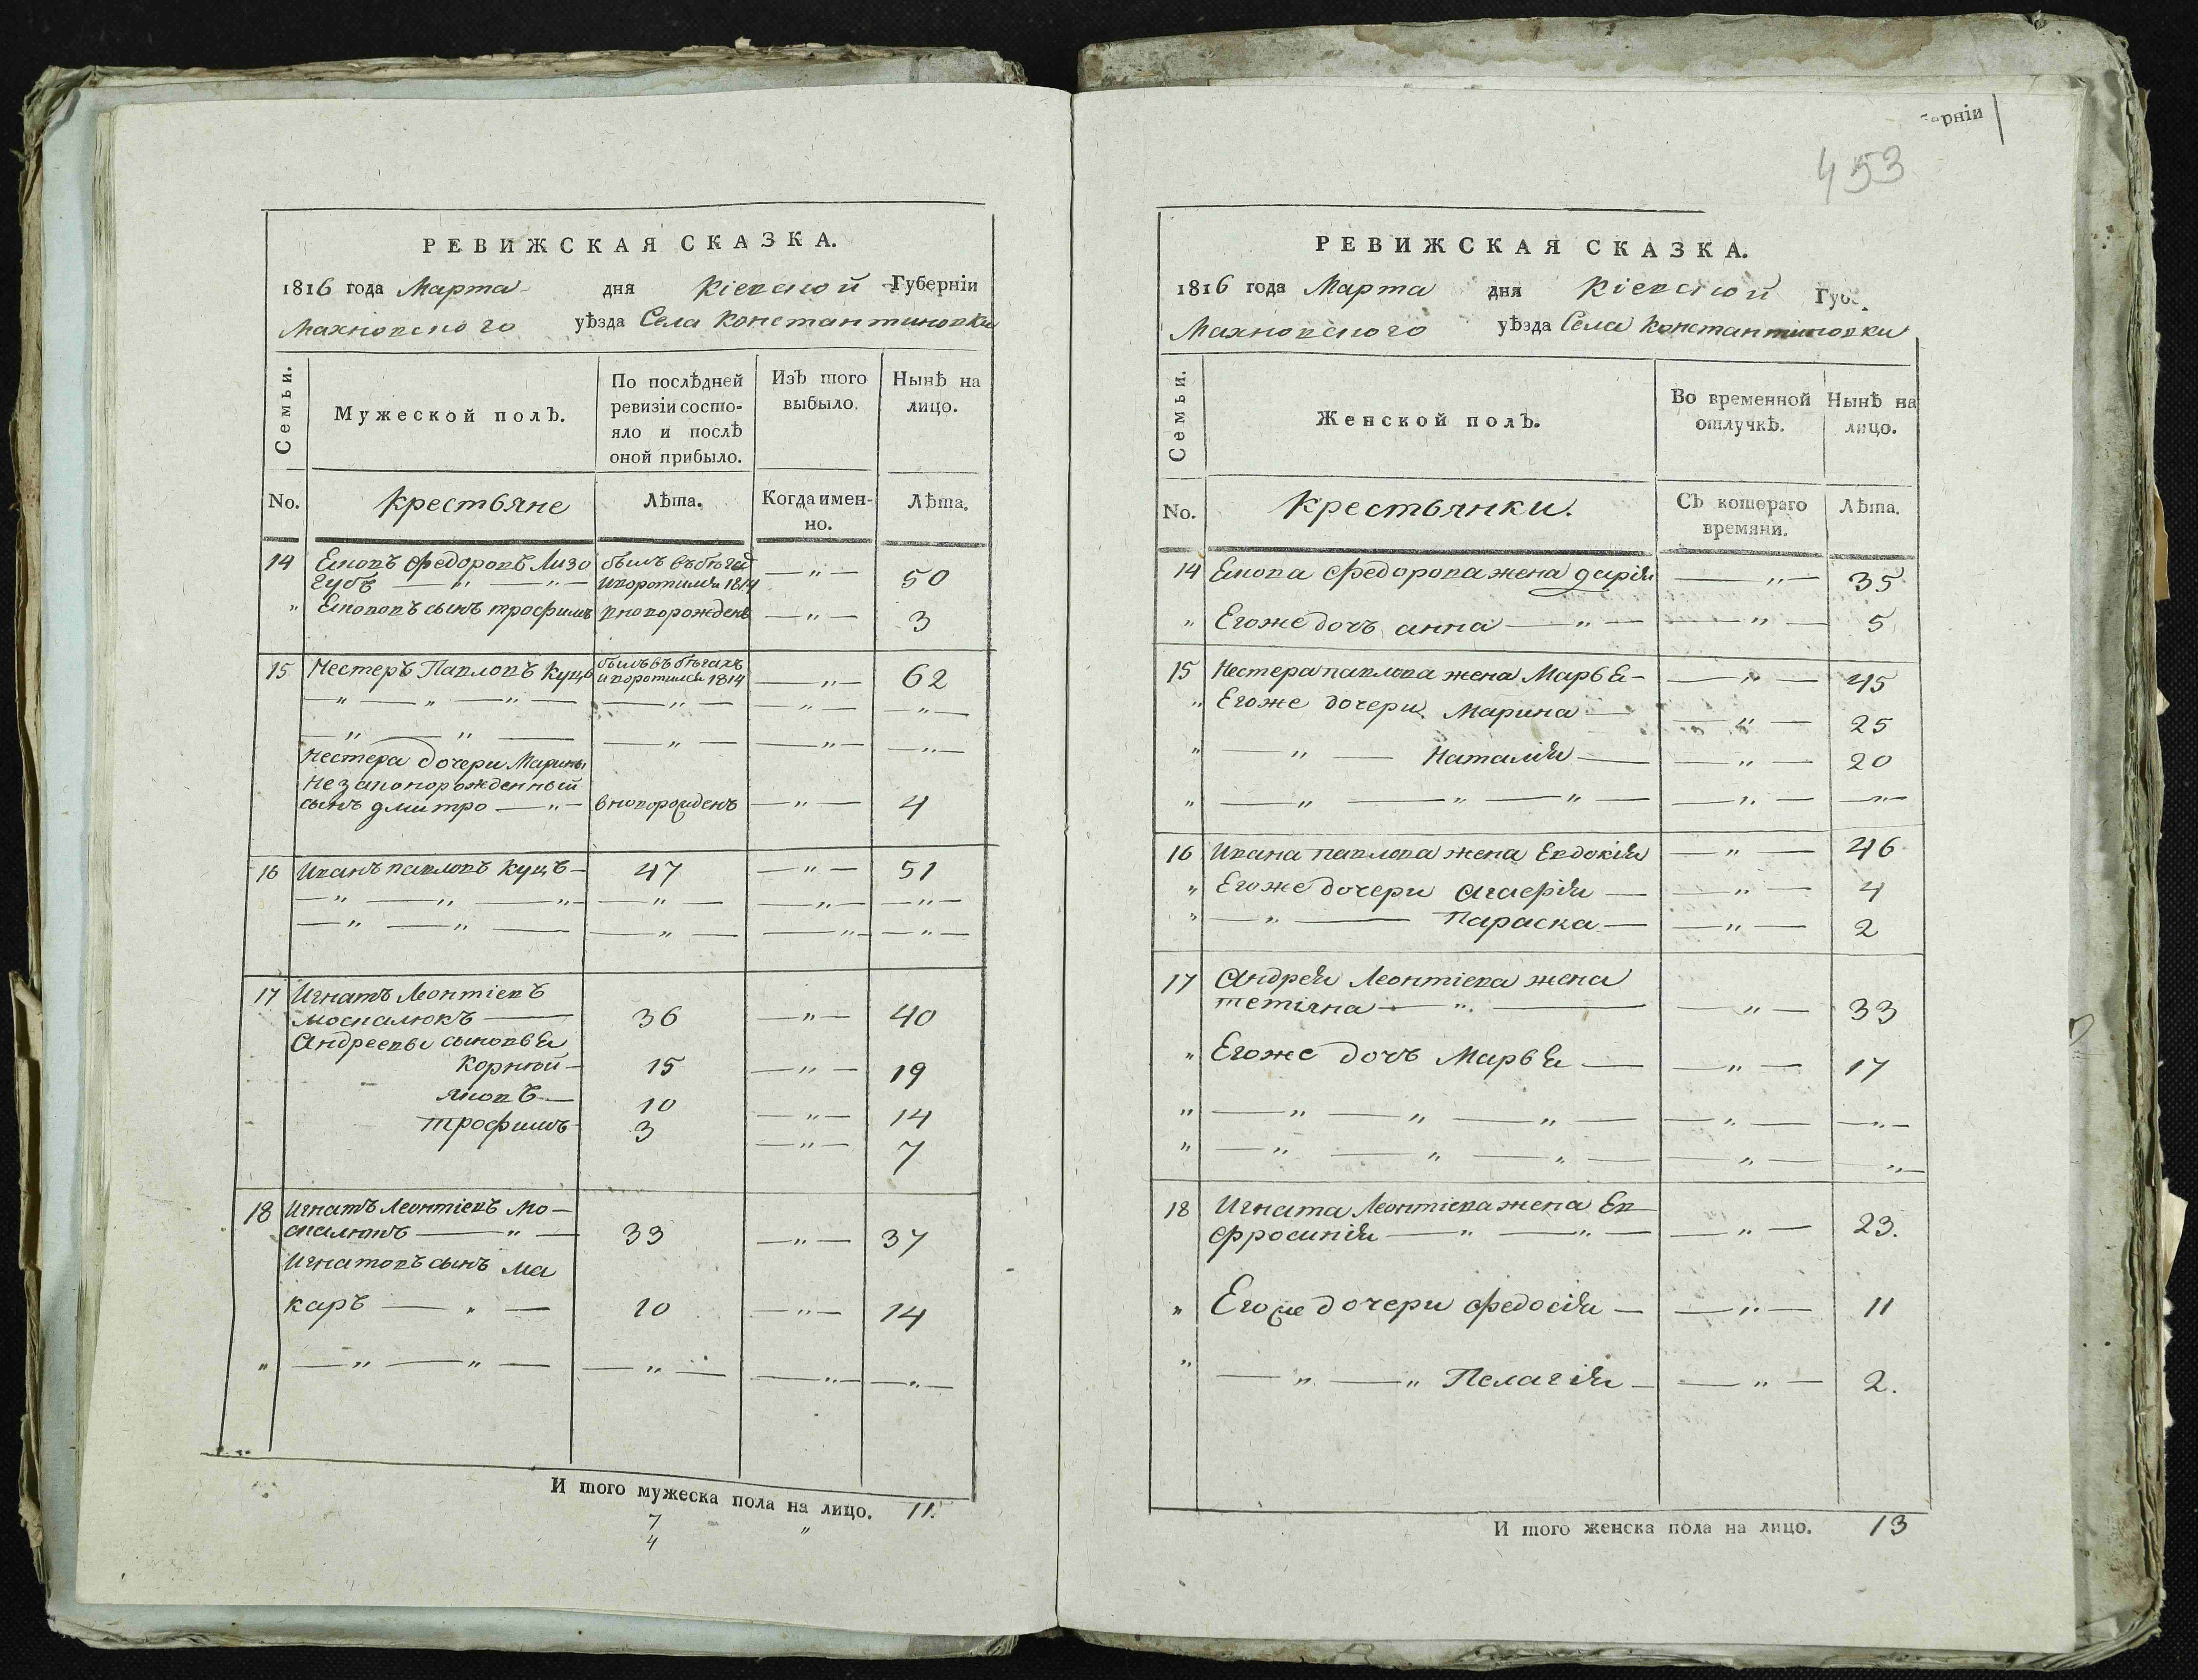 РЕВИЖСКАЯ СКАЗКА.
1816 года Марта дня Кіевской Губерніи
Махновского уѣзда Села Константиновки
Семьи.
Мужеской полъ.
По послѣдней ревизіи состо-
яло и послѣ
оной прибыло.
Изъ того
выбыло.
Нынѣ на
лицо.
No.
Крестьяне
Лѣта.
Когда имен-
но.
Лѣта.
14 Яковъ Федоровъ Лизо былъ въ бѣгах
губъ — „ — „ — и воротился 1814 — „ — 50
„ Якововъ сынъ трофимъ вноворожденъ — „ — 3
15 Нестеръ Павловъ Куцъ былъ въ бѣгахъ
и воротился 1814 — „ — 62
— „ — „ — „ — — „ — — „ — — „ —
— „ — „ — — „ — — „ — — „ —
Нестера дочери Марины
незаконорожденный
сынъ дмитро — „ — вноворожденъ — „ — 4
16 Иванъ павловъ Куцъ — 47 — „ — 51
— „ — „ — „ — — „ — — „ — — „ —
— „ — „ — — „ — — „ — — „ —
17 Игнатъ Леонтіевъ
москалюкъ — 36 — „ — 40
Андреевы сыновья
Корнюй — 15 — „ — 19
Яковъ — 10 — „ — 14
трофимъ — 3 — „ — 7
18 Игнатъ Леонтіевъ Мо—
скалюкъ — „ — 33 — „ — 37
Игнатовъ сынъ Ма
каръ — „ — 10 — „ — 14
„ — „ — „ — — „ — — „ — — „ —
И того мужеска пола на лицо. 11.
7 „
4
ерніи
453
РЕВИЖСКАЯ СКАЗКА.
1816 года Марта дня Кіевской Губе
Махновского уѣзда Села Константиновки
Семьи.
Женской полъ.
Во временной
отлучкѣ.
Нынѣ на
лицо.
No.
Крестьянки.
Съ котораго
времяни.
Лѣта.
14 Якова Федорова жена дарія — „ — 35
„ Егоже дочъ анна — „ — — „ — 5
15 Нестера павлова жена Марья — — „ — 45
„ Егоже дочери Марина — — „ — 25
„ — „ — Наталія — — „ — 20
„ — „ — „ — „ — — „ — — „ —
16 Ивана павлова жена Евдокія — „ — 46
„ Егоже дочери Агафія — — „ — 4
„ — „ — Параска — — „ — 2
17 Андрея Леонтіева жена
тетіяна — „ — — „ — 33
„ Егоже дочъ Марья — — „ — 17
„ — „ — „ — „ — — „ — — „ —
„ — „ — „ — „ — — „ — — „ —
18 Игната Леонтіева жена Ев
фросинія — „ — „ — — „ — 23.
„ Егоже дочери Федосія — — „ — 11
„ — „ — „ Пелагія — — „ — 2.
И того женска пола на лицо. 13